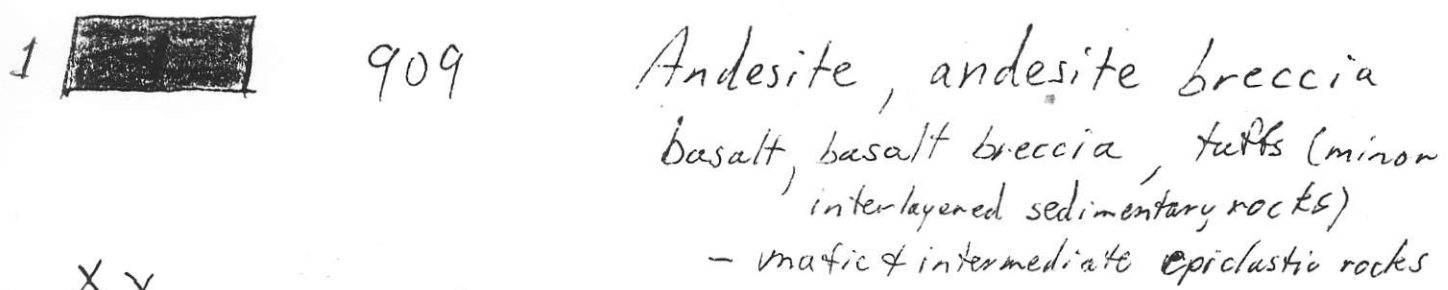 1 909 Andesite, andesite breccia
basalt, basalt breccia, tuffs (minor
interlayered sedimentary rocks)
- mafic & intermediate epiclastic rocks
X Y